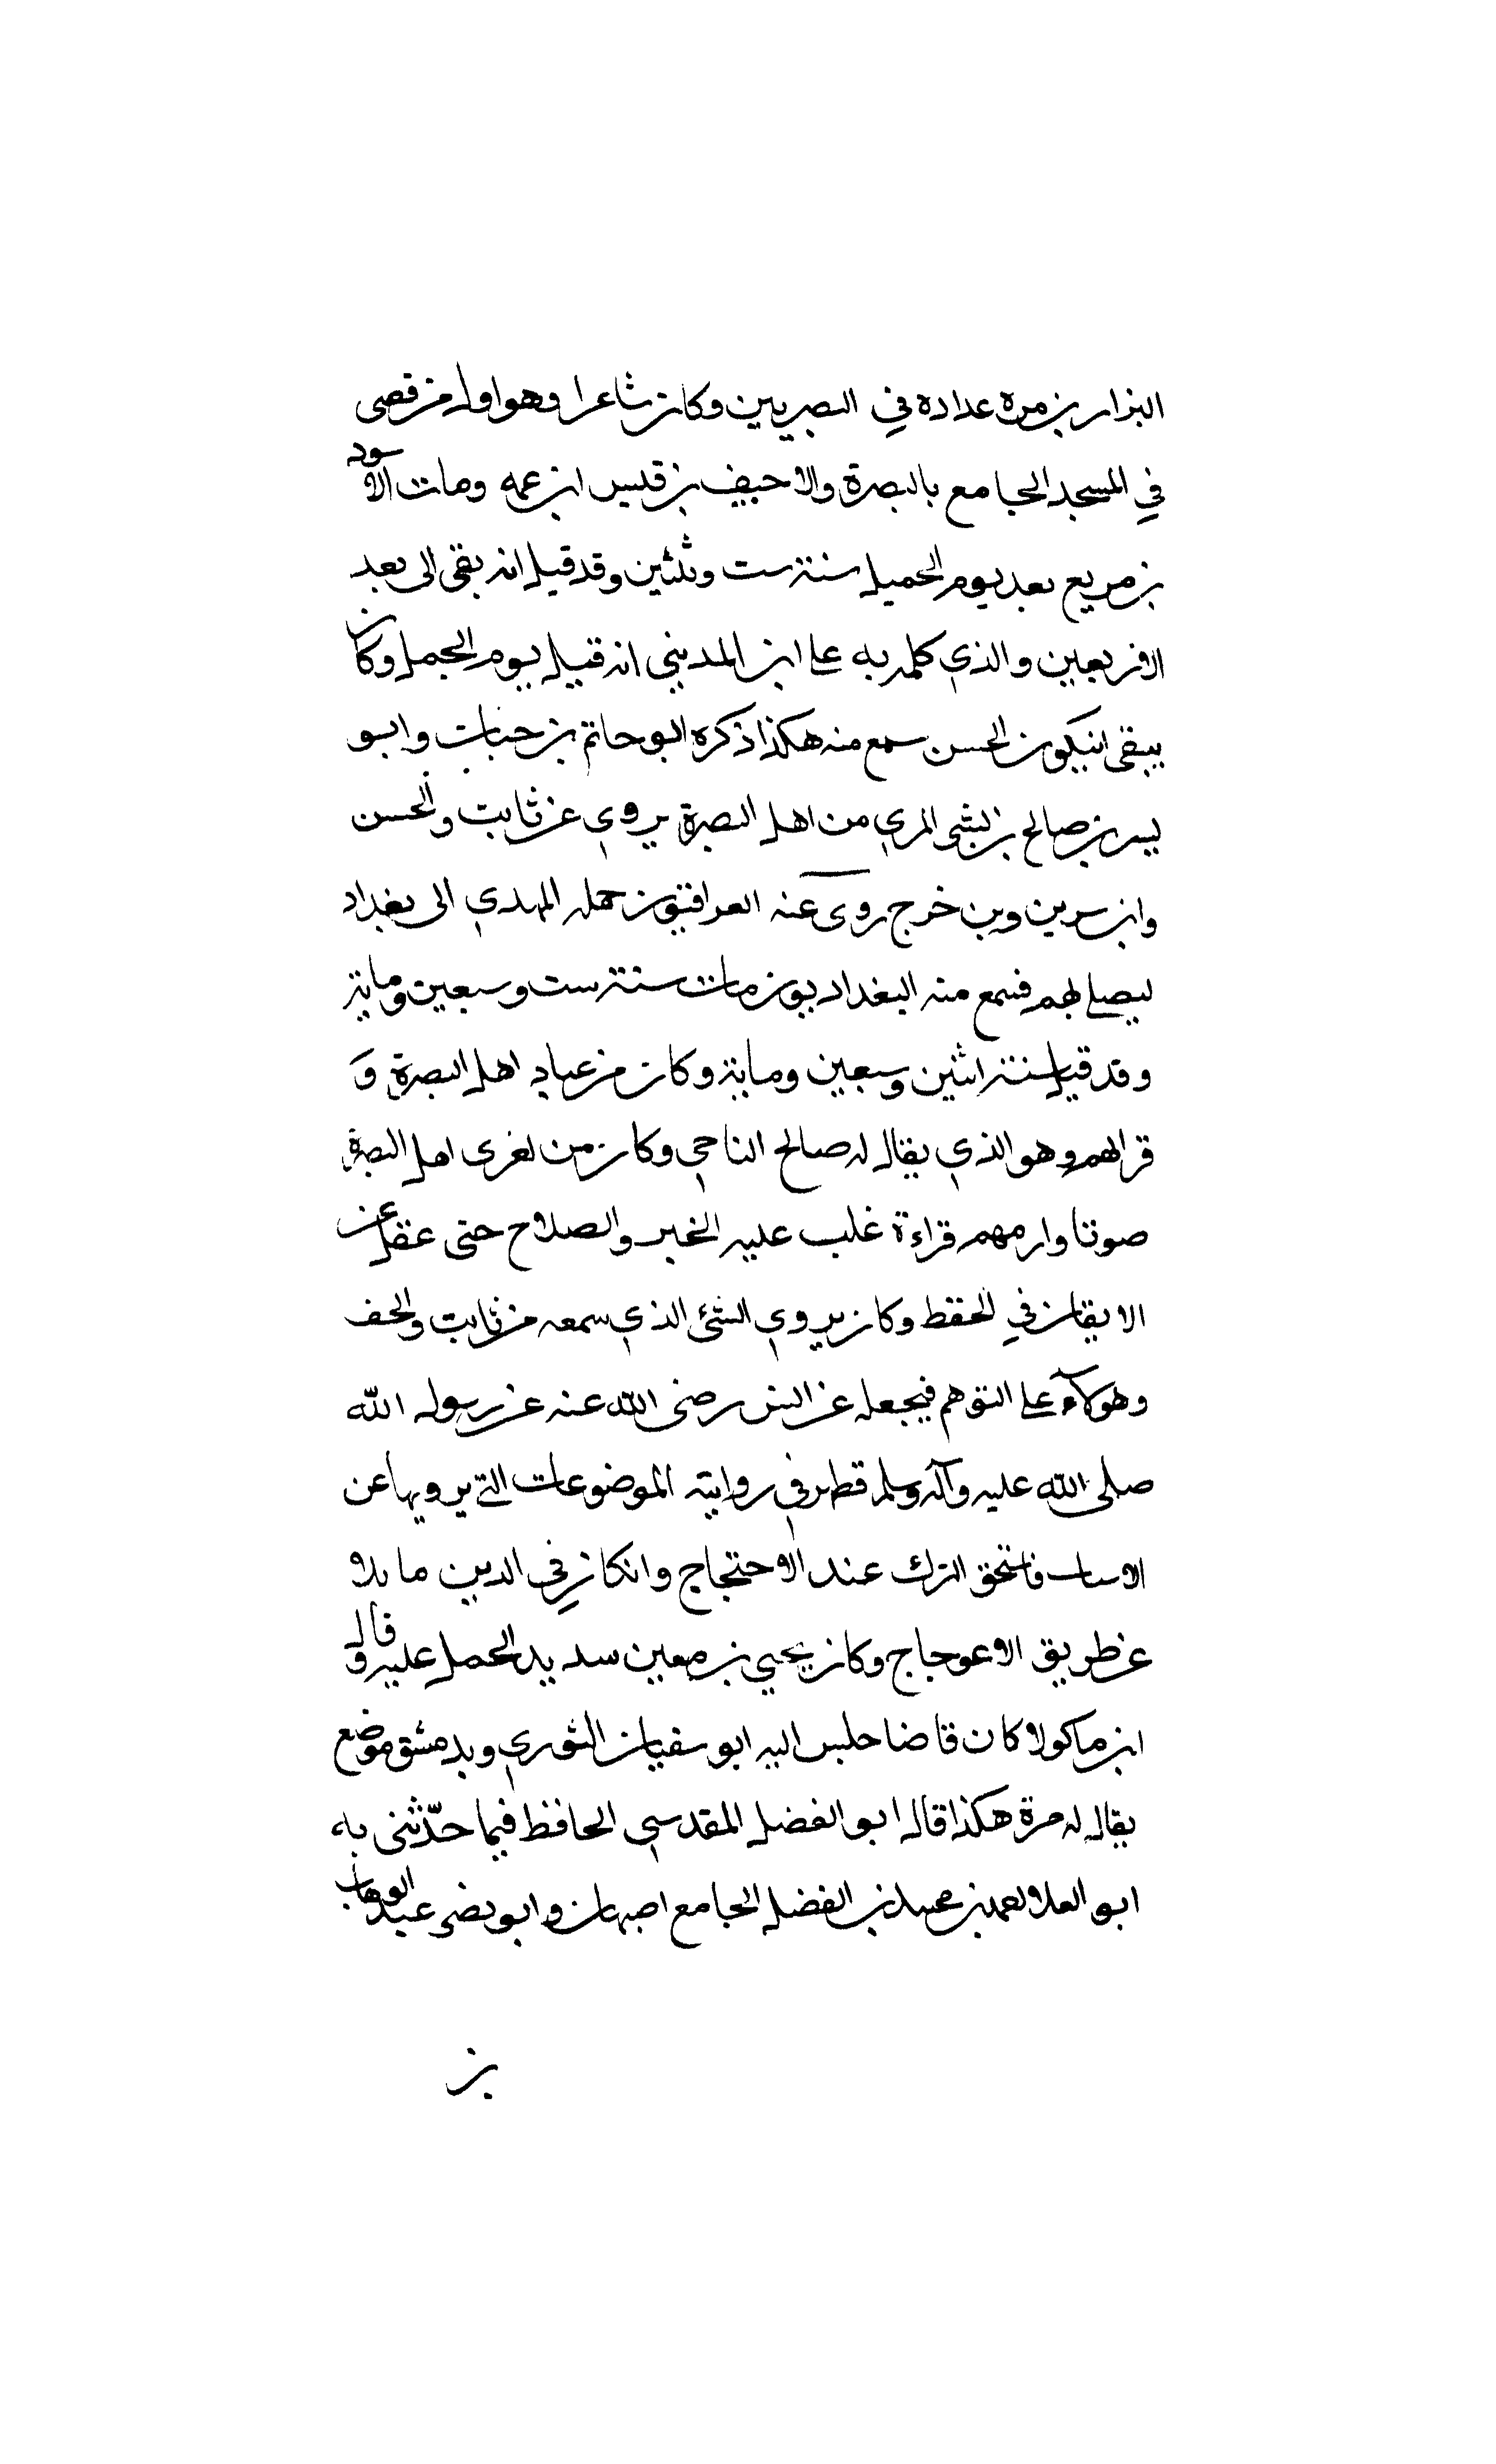 البزار بن مرة عداده في البصريين وكان شاعرا وهو اول من قصى
في المسجد الجامع بالبصرة والاحنف بن قيس ابن عمه ومات الاسود
بن مريع بعد يوم الحميل سنة ست وثلثين وقد قيل انه بقى الى بعد
الاربعين والذي كلمر به على ابن المديني انه قتيل يوم الجمل وكان
يبقى انيكون الحسن سمع منه هكذا ذكره ابو حاتم بن حبات وابو
يسر بن صالح بن بشى المري من اهل البصرة يروي عن ثابت والحسن
وابن سرين وبن خرج روى عنه العراقيون حمله المهدي الى بغداد
ليصلى لهم فسمع منه البغداديون مات سنة ست وسبعين وماية
وقد قيل سنة اثنين وسبعين وماية وكان من عباد اهل البصرة و
قرالهم وهو الذي يقال له صالح الناحي وكان من لغرى اهل البصرة
صوتا وارمهم قراءة غلب عليه الخير والصلاح حتى عقل عن
الايقان في الحفظ وكان يروي الشئ الذي سمعه من ثابت والحف
وهوكاء على التوهم فيجعله عن انس رضى الله عنه عن رسول الله
صلى الله عليه وآله وسلم قطهر في روايته الموضوعات التي يرويها عن
الاسات فاستحق الترك عند الاحتجاج وانكان في الدين مايلا
عن طريق الاعوجاج وكان يحيي بن معين سديد الحمل عليه وقال
ابن ماكولا كان قاضا حلس اليه ابو سفيان الثوري وبدمشق موضع
يقال له مرة هكذا قاله ابو الفضل المقدسي الحافظ فيما حدّثنى به
ابو العلا لعمد بن محمد بن الفضل الجامع اصبهان وابو نصر عبد الوهاب
بن